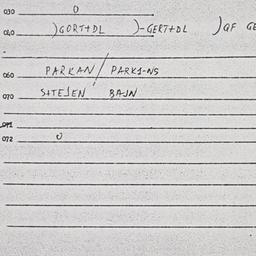 030 0
040 )GORT+DL )-GERT+DL )GF GE
060 PARKAN / PARK1-NS
070 S+TEJEN BAJN
071
072 0